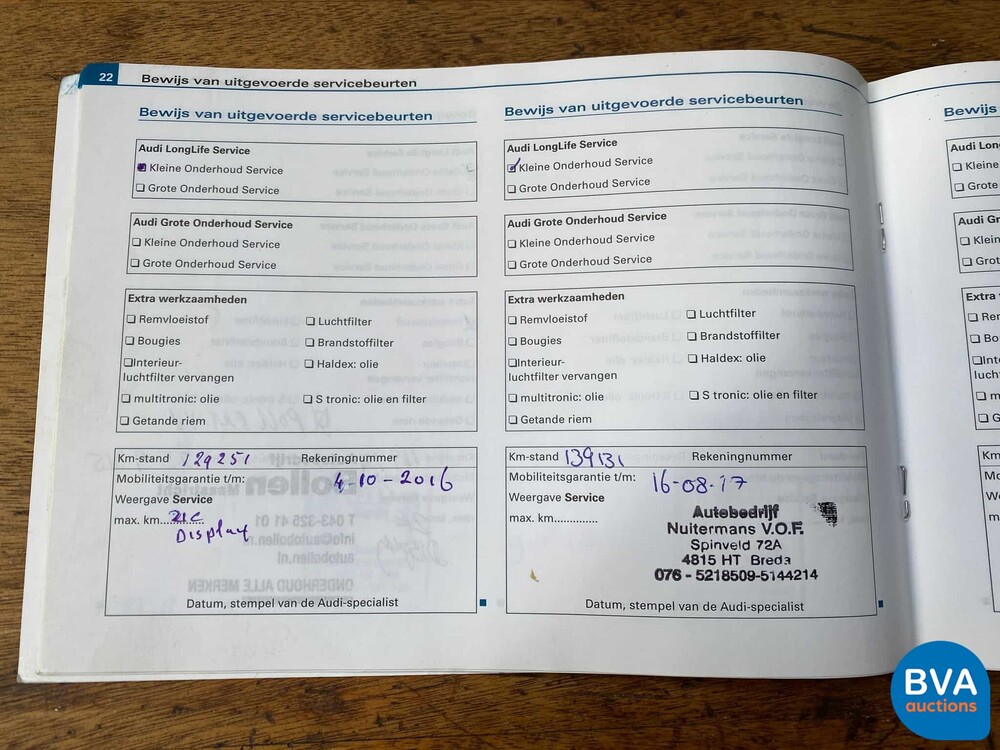 22 Bewijs van uitgevoerde servicebeurten
Bewijs van uitgevoerde servicebeurten
Audi LongLife Service
Kleine Onderhoud Service
Grote Onderhoud Service
Audi Grote Onderhoud Service
Kleine Onderhoud Service
Grote Onderhoud Service
Extra werkzaamheden
Remvloeistof
Luchtfilter
Bougies
Brandstoffilter
Interieur-
luchtfilter vervangen
Haldex: olie
multitronic: olie
S tronic: olie en filter
Getande riem
Km-stand 129251 Rekeningnummer
Mobiliteitsgarantie t/m: 4-10-2016
Weergave Service
max. km.............. zie
Display
Datum, stempel van de Audi-specialist
Bewijs van uitgevoerde servicebeurten
Audi LongLife Service
Kleine Onderhoud Service
Grote Onderhoud Service
Audi Grote Onderhoud Service
Kleine Onderhoud Service
Grote Onderhoud Service
Extra werkzaamheden
Remvloeistof
Luchtfilter
Bougies
Brandstoffilter
Interieur-
luchtfilter vervangen
Haldex: olie
multitronic: olie
S tronic: olie en filter
Getande riem
Km-stand 139131 Rekeningnummer
Mobiliteitsgarantie t/m: 16-08-17
Weergave Service
max. km..............
Autobedrijf
Nuitermans V.O.F.
Spinveld 72A
4815 HT Breda
076 - 5218509-5144214
Datum, stempel van de Audi-specialist
Bewijs
BVA
auctions